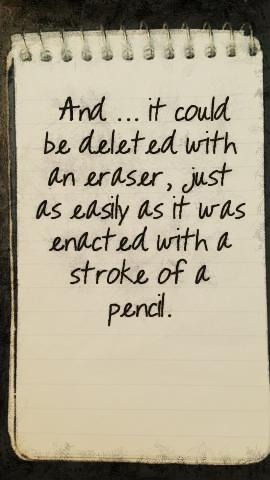 And ... it could
be deleted with
an eraser, just
as easily as it was
enacted with a
stroke of a
pencil.